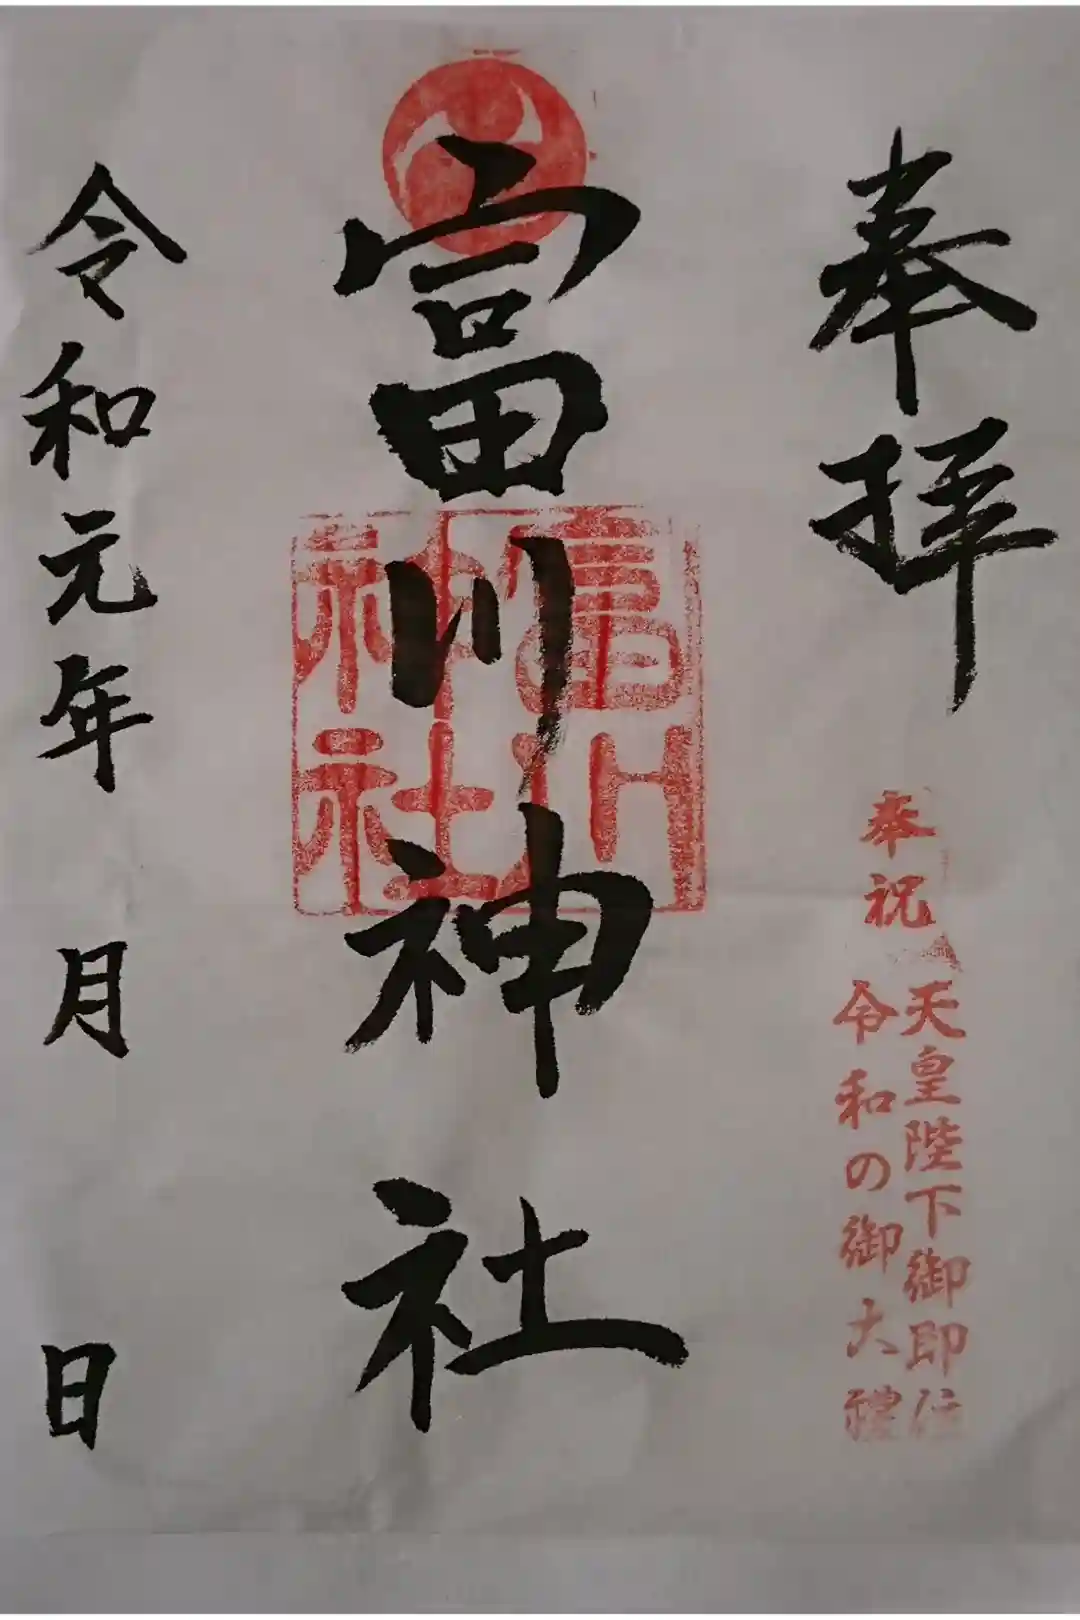 奉拝
奉祝
天皇陛下御即位
令和の御大禮
富川神社
富川神社
令和元年 月 日